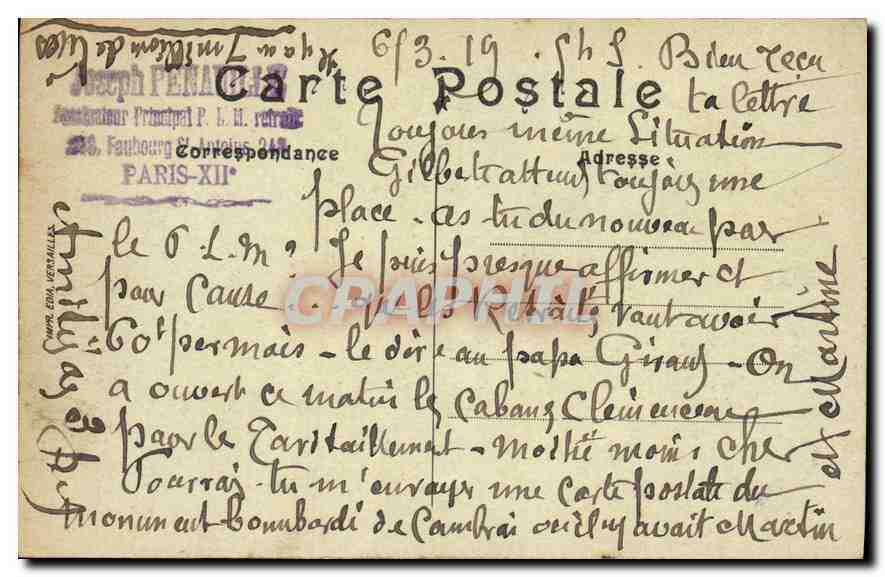 Il y a 7 million de tués
6/3.19. 5h S. Bien reçu
Carte Postale
ta lettre
Joseph
Principal P. L. M. retraité
Faubourg St Antoine
PARIS-XIIe
Correspondance
Adresse
Toujours même Situation
Gilbert attend toujours une
place - as-tu du nouveau par
le P.L.M? Je puis presque affirmer et
pour cause que les Retraités vont avoir
60f par mois - le dire au papa Giraud - On
a ouvert ce matin les cabanes Clémenceau
pour le Ravitaillement - moitié moins cher
Pourrais-tu m'envoyer une carte postale du
monument bombardé de Cambrai où il y avait Martin
et Martine
Amitiés à
IMPR. EDIA, VERSAILLES
GRAPHTIL